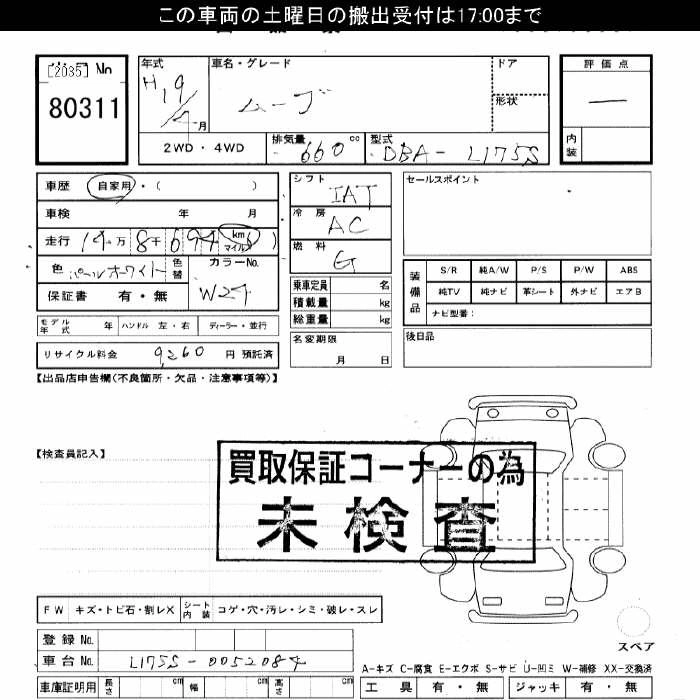 この車両の土曜日の搬出受付は17:00まで
[2035] No
80311
年式
H19/4月
車名・グレード
ムーブ
ドア
形状
評価点
―
内装
2WD・4WD
排気量 660 cc
型式 DBA-L175S
車歴 自家用・( )
車検 年 月
走行 14万8千694 km マイル
色 パールホワイト 色替
カラーNo. W24
保証書 有・無
シフト IAT
冷房 AC
燃料 G
乗車定員 名
積載量 kg
総重量 kg
セールスポイント
装備品
S/R 純A/W P/S P/W ABS
純TV 純ナビ 革シート 外ナビ エアB
ナビ型番:
モデル年式 年 ハンドル 左・右 ディーラー・並行
リサイクル料金 9,260 円 預託済
名変期限 月 日
後日品
【出品店申告欄(不良箇所・欠品・注意事項等)】
【検査員記入】
買取保証コーナーの為
未検査
FW キズ・トビ石・割レX シート内装 コゲ・穴・汚レ・シミ・破レ・スレ
スペア
登録No.
車台No. L175S-0052084
A-キズ C-腐食 E-エクボ S-サビ U-凹ミ W-補修 XX-交換済
車庫証明用 長さ cm 幅 cm 高さ cm
工具 有・無 ジャッキ 有・無